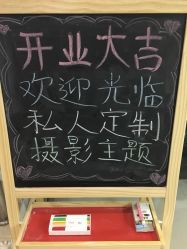 开业大吉
欢迎光临
私人定制
摄影主题